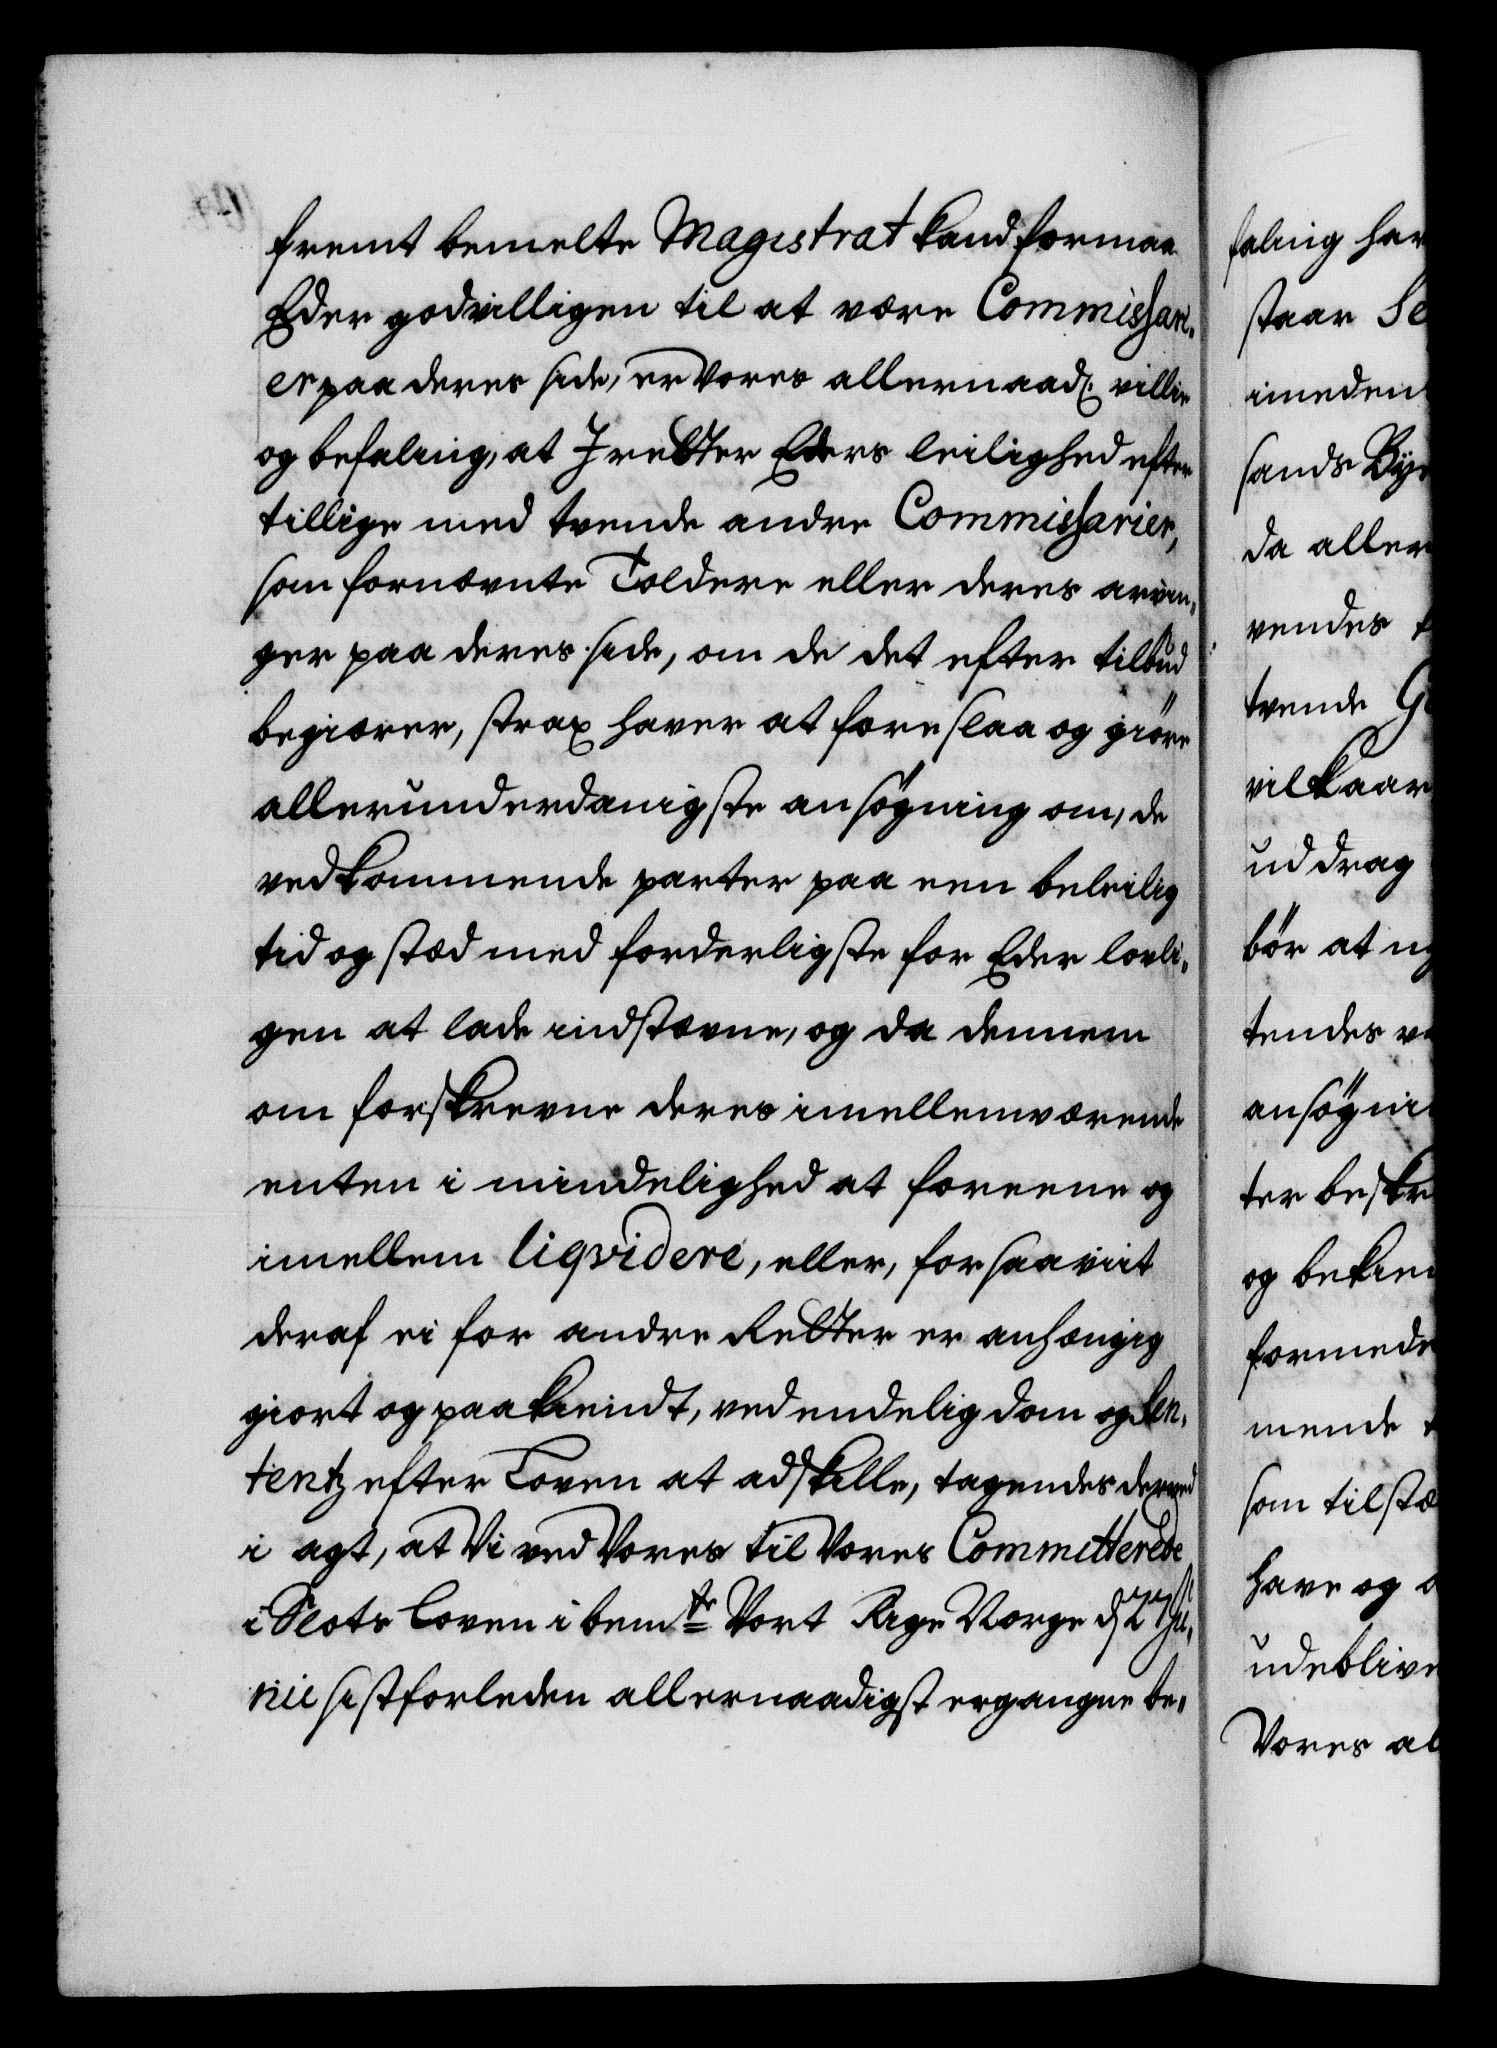 fremt bemelte Magistrat kand formaa
Eder godvilligen til at være Commissari,
er paa deres side, er Vores allernaad. villie
og befaling, at I retter Eders leilighed efter
tillige med tvende andre Commissarier,
som fornævnte Toldere eller deres arvin,
ger paa deres side, om de det efter tilbud
begiærer, strax haver at foreslaa og giöre
allerunderdanigste ansögning om, de
vedkommende parter paa een beleilig
tid og stæd med forderligste for Eder lovli,
gen at lade indstævne, og da dennem
om forskrevne deres imellemværende
enten i mindelighed at foreene og
imellem liqvidere, eller, forsaaviit
deraf ei for andre Retter er anhængig
giort og paakiendt, ved endelig dom og Sen,
tentz efter Loven at adskille, tagendes derved
i agt, at Vi ved Vores til Vores Committerede
i Slots Loven i bem.te Vort Rige Norge d. 27 Ju,
nii sistforleden allernaadigst ergangne be,
faling hav
staar Se
imeden
sands Bye
da aller
vendes
tvende G
vilkaar
uddrag
bör at ny
tendes v
ansögni
ter beskr
og bekien
formede
mende
som tilstæ
have og
udeblive
Vores al